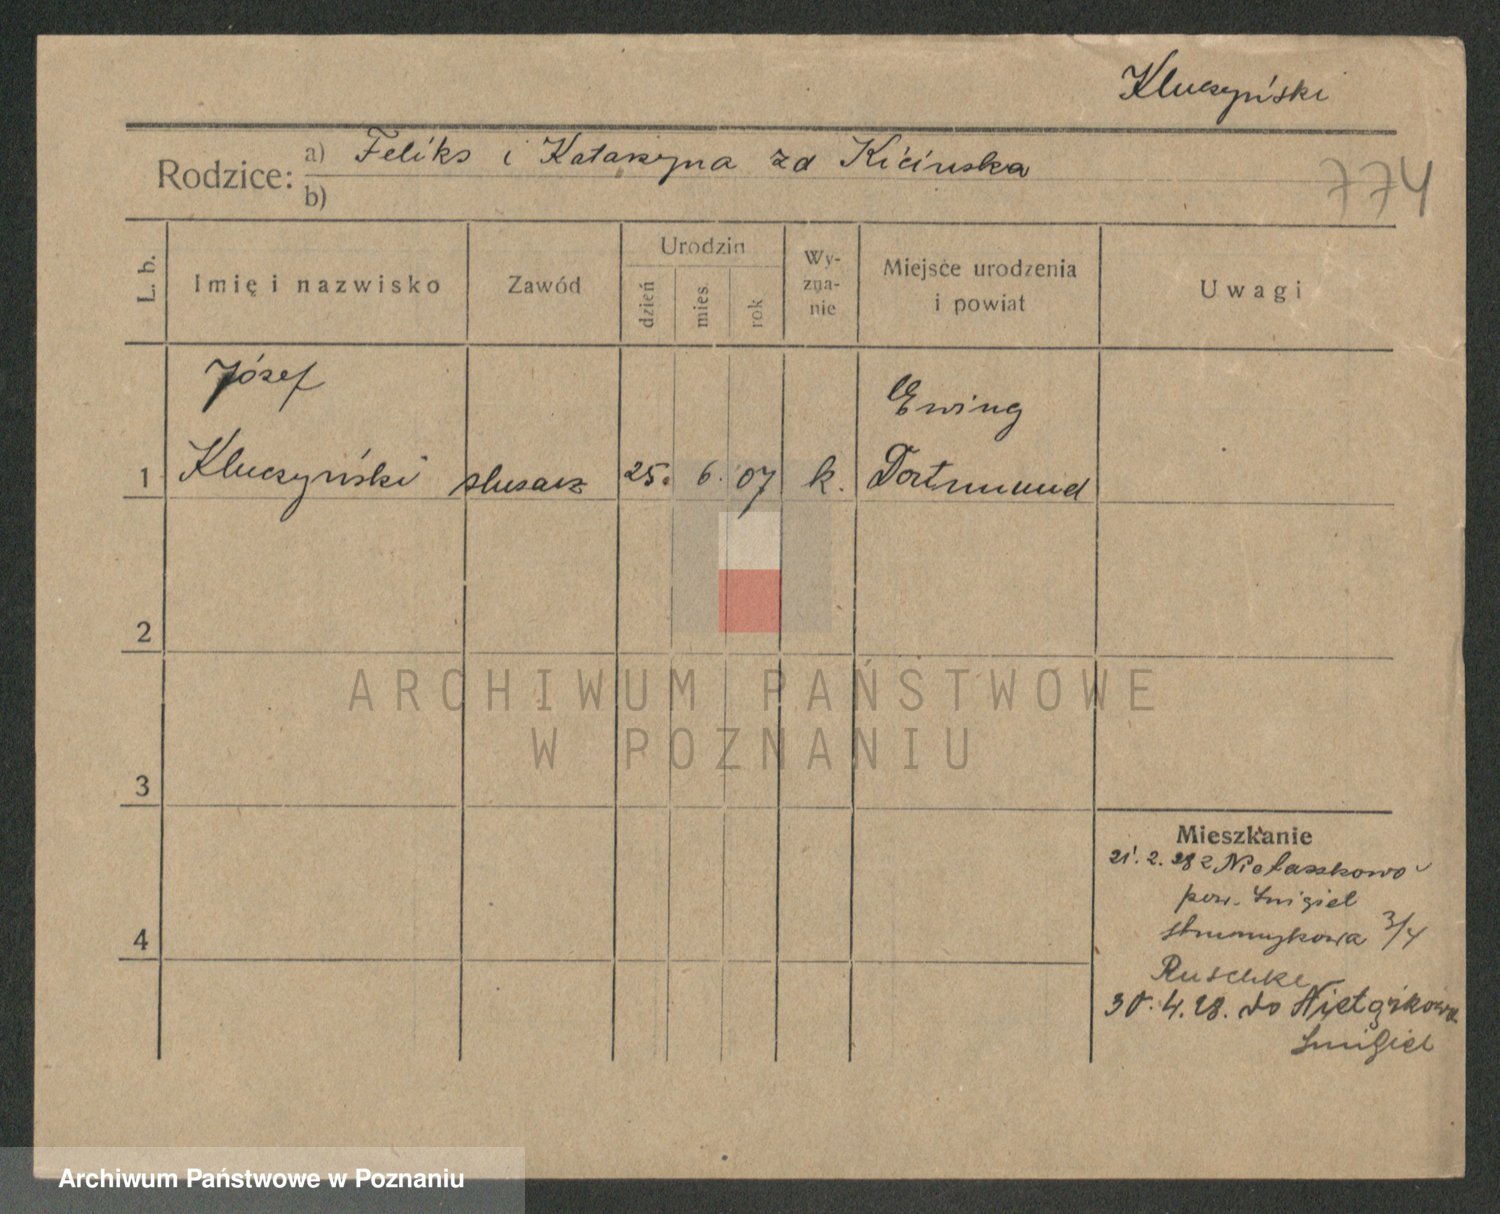 Kluczyński
Rodzice: a) Feliks i Katarzyna zd Kicinska
b)
774
L. b.
Imię i nazwisko
Zawód
Urodzin
dzień
mies.
rok
Wy-
zna-
nie
Miejsce urodzenia
i powiat
Uwagi
Józef
Ewing
1 Kluczyński slusarz 25. 6. 07 k. Dortmund
2
3
4
Mieszkanie
21. 2. 28 z Nietaszkowo
pow. Smigiel
Strumykowa 3/4
Ruschke
30. 4. 28. do
Smigiel
ARCHIWUM PAŃSTWOWE
W POZNANIU
Archiwum Państwowe w Poznaniu